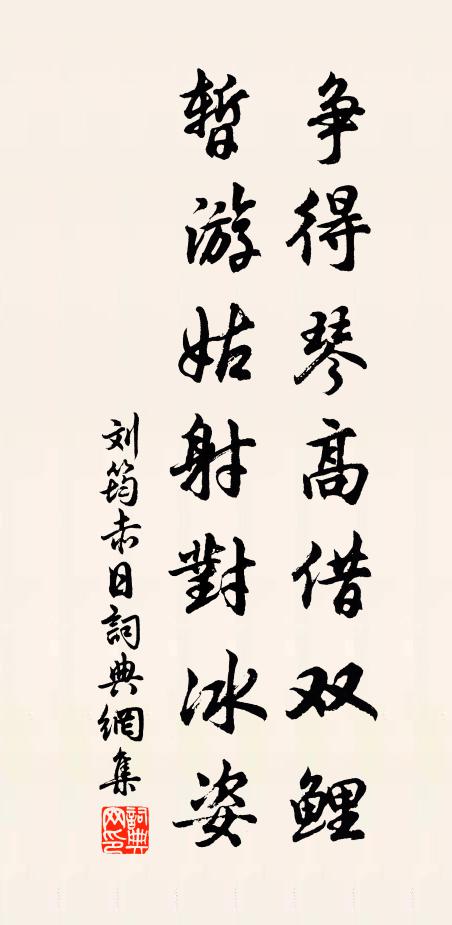 争得琴高借双鲤
暂游姑射對冰姿
刘筠赤日詞典網集
詞典网印